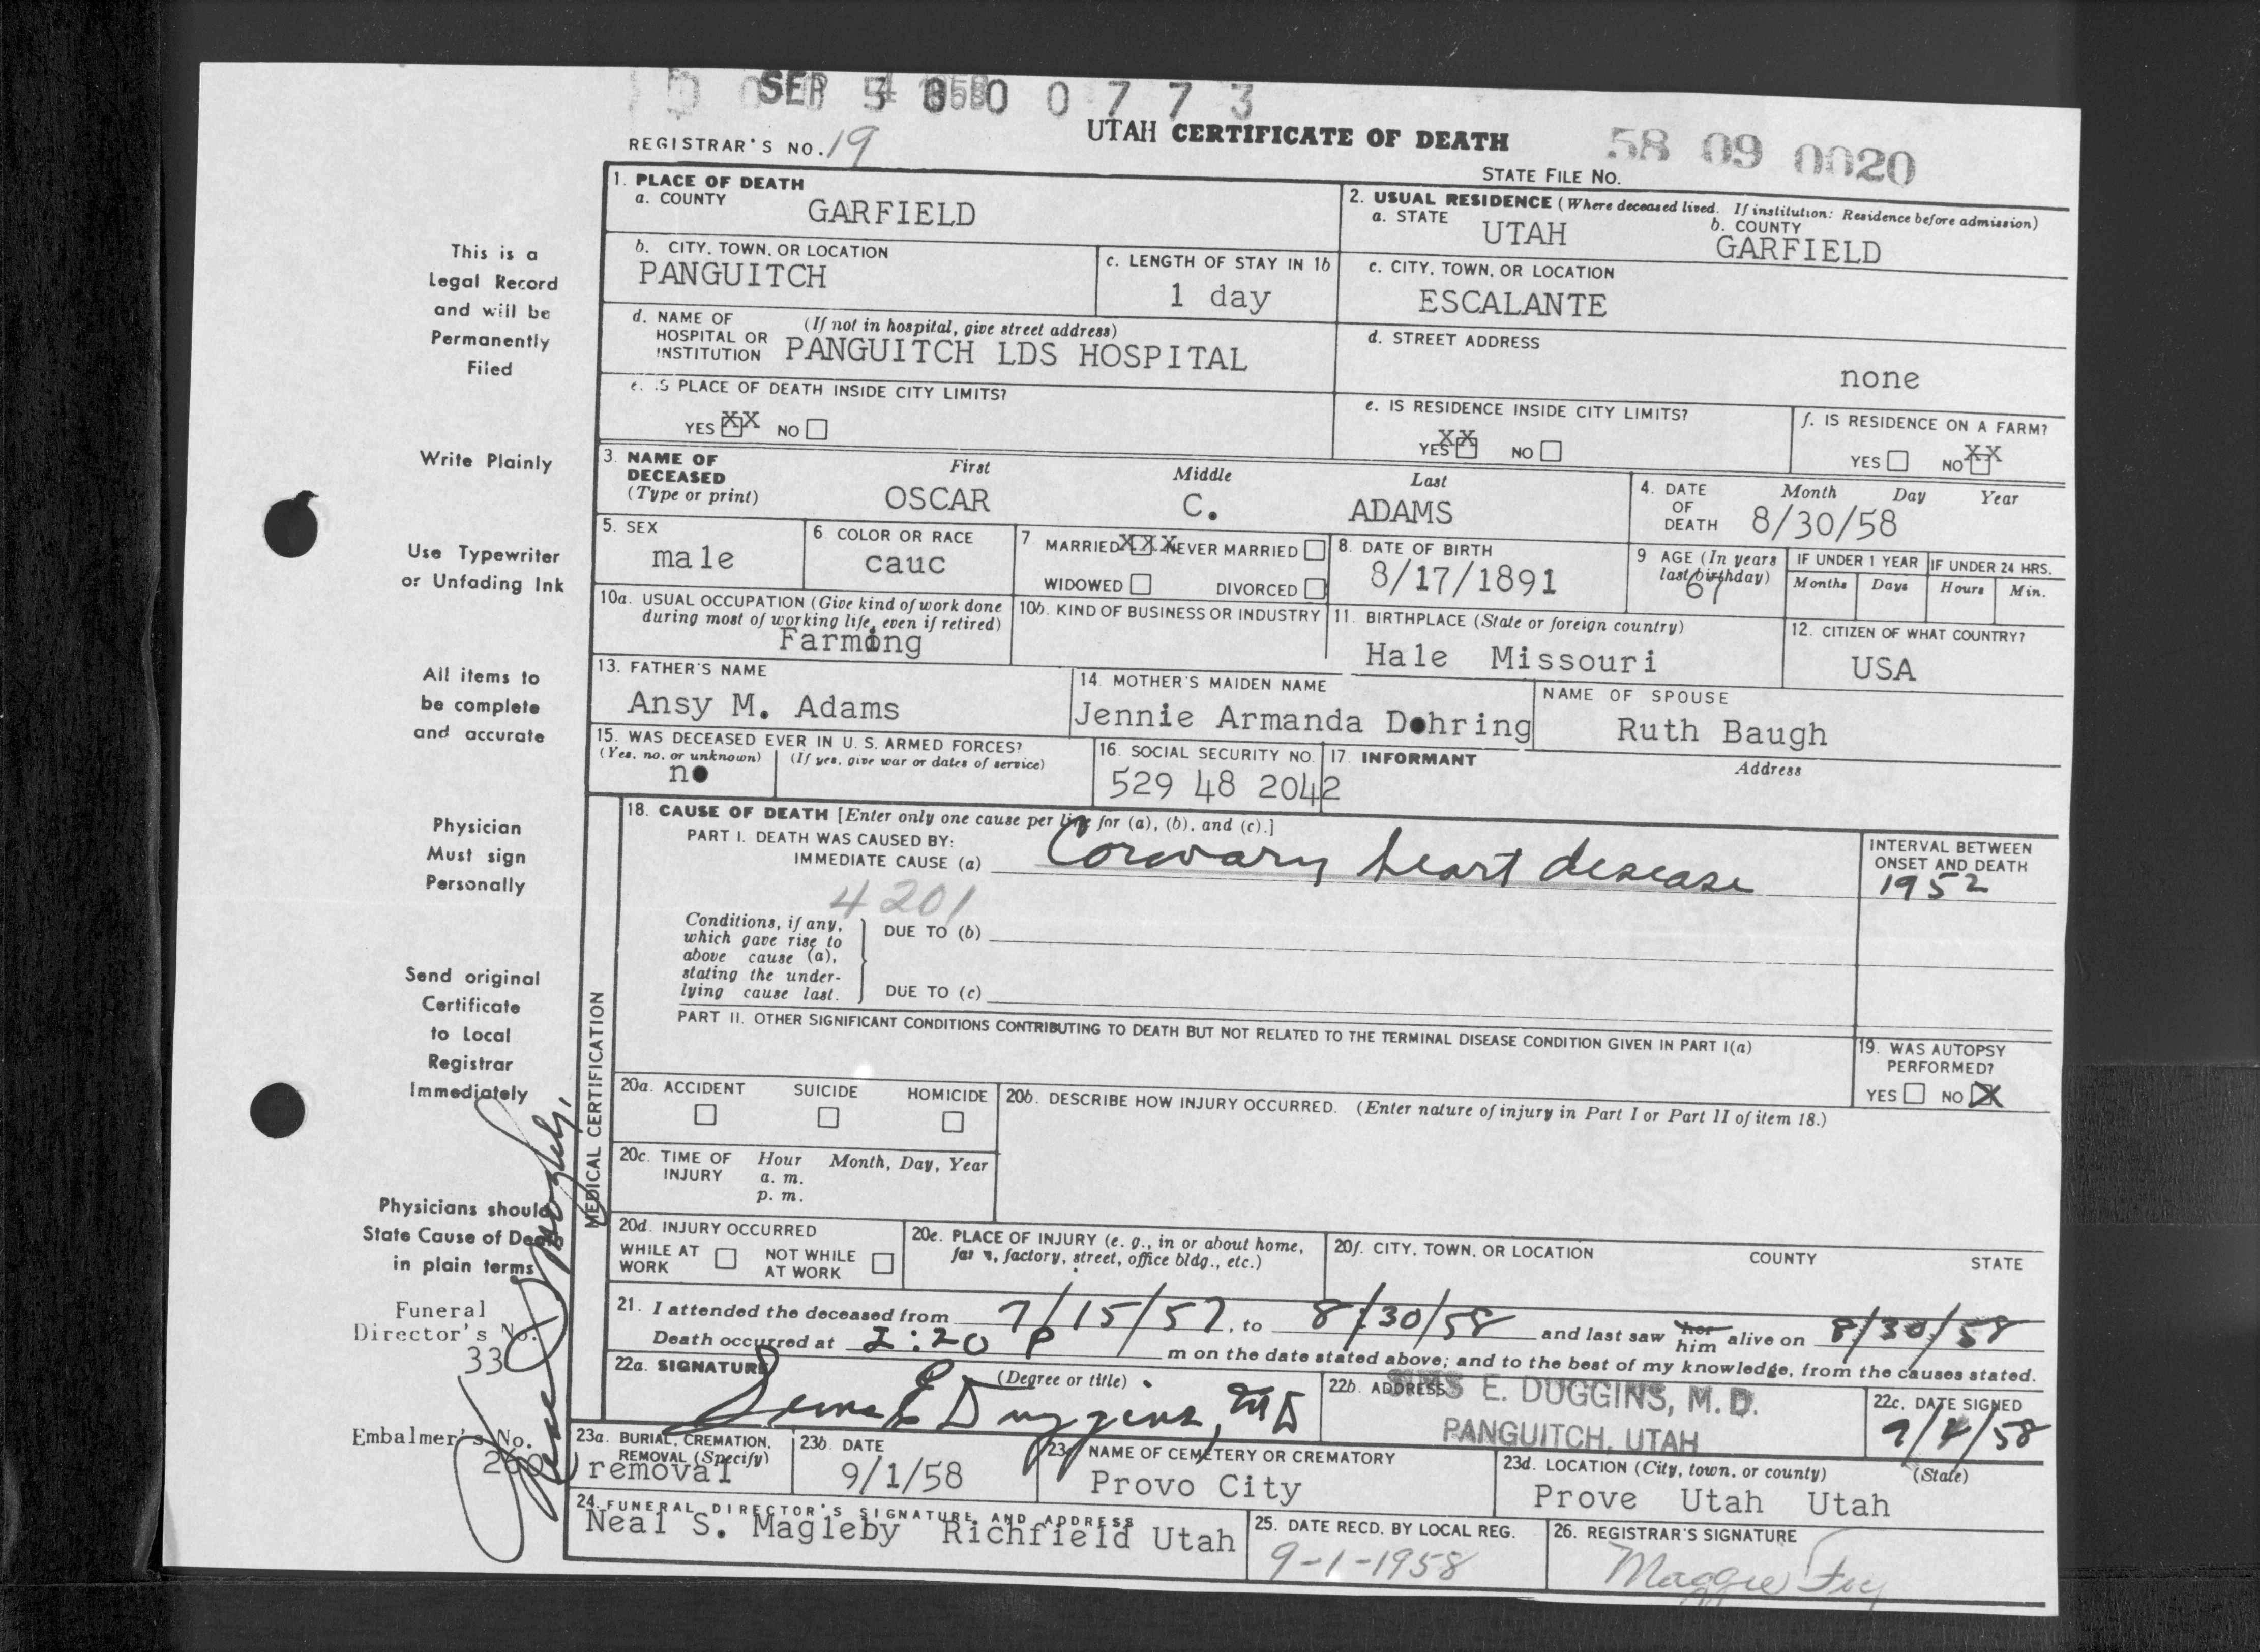 SEP
0 0 7 7 3
REGISTRAR'S NO. 19
UTAH CERTIFICATE OF DEATH
58 09 0020
STATE FILE NO.
1. PLACE OF DEATH
a. COUNTY
GARFIELD
2. USUAL RESIDENCE (Where deceased lived. If institution: Residence before admission)
a. STATE UTAH b. COUNTY GARFIELD
b. CITY, TOWN, OR LOCATION
PANGUITCH
c. LENGTH OF STAY IN 1b
1 day
c. CITY, TOWN, OR LOCATION
ESCALANTE
d. NAME OF HOSPITAL OR INSTITUTION (If not in hospital, give street address)
PANGUITCH LDS HOSPITAL
d. STREET ADDRESS
none
e. IS PLACE OF DEATH INSIDE CITY LIMITS?
YES XX NO
e. IS RESIDENCE INSIDE CITY LIMITS?
YES XX NO
f. IS RESIDENCE ON A FARM?
YES NO XX
3. NAME OF DECEASED (Type or print)
First Middle Last
OSCAR C. ADAMS
4. DATE OF DEATH Month Day Year
8/30/58
5. SEX
male
6 COLOR OR RACE
cauc
7 MARRIED XXX NEVER MARRIED
WIDOWED DIVORCED
8. DATE OF BIRTH
8/17/1891
9 AGE (In years last birthday)
67
IF UNDER 1 YEAR IF UNDER 24 HRS.
Months Days Hours Min.
10a. USUAL OCCUPATION (Give kind of work done during most of working life, even if retired)
Farming
10b. KIND OF BUSINESS OR INDUSTRY
11. BIRTHPLACE (State or foreign country)
Hale Missouri
12. CITIZEN OF WHAT COUNTRY?
USA
13. FATHER'S NAME
Ansy M. Adams
14. MOTHER'S MAIDEN NAME
Jennie Armanda Dohring
NAME OF SPOUSE
Ruth Baugh
15. WAS DECEASED EVER IN U. S. ARMED FORCES?
(Yes, no, or unknown) (If yes, give war or dates of service)
no
16. SOCIAL SECURITY NO.
529 48 2042
17. INFORMANT Address
MEDICAL CERTIFICATION
18. CAUSE OF DEATH [Enter only one cause per line for (a), (b), and (c).]
PART I. DEATH WAS CAUSED BY:
IMMEDIATE CAUSE (a) Coronary heart disease
INTERVAL BETWEEN ONSET AND DEATH
1952
4201
Conditions, if any, which gave rise to above cause (a), stating the underlying cause last.
DUE TO (b)
DUE TO (c)
PART II. OTHER SIGNIFICANT CONDITIONS CONTRIBUTING TO DEATH BUT NOT RELATED TO THE TERMINAL DISEASE CONDITION GIVEN IN PART I(a)
19. WAS AUTOPSY PERFORMED?
YES NO X
20a. ACCIDENT SUICIDE HOMICIDE
20b. DESCRIBE HOW INJURY OCCURRED. (Enter nature of injury in Part I or Part II of item 18.)
20c. TIME OF INJURY Hour Month, Day, Year
a. m.
p. m.
20d. INJURY OCCURRED
WHILE AT WORK NOT WHILE AT WORK
20e. PLACE OF INJURY (e. g., in or about home, farm, factory, street, office bldg., etc.)
20f. CITY, TOWN, OR LOCATION COUNTY STATE
21. I attended the deceased from 7/15/57, to 8/30/58 and last saw her him alive on 8/30/58
Death occurred at 2:20 P m on the date stated above; and to the best of my knowledge, from the causes stated.
22a. SIGNATURE (Degree or title)
Sims E Duggins, MD
22b. ADDRESS
SIMS E. DUGGINS, M. D.
PANGUITCH, UTAH
22c. DATE SIGNED
9/4/58
23a. BURIAL, CREMATION, REMOVAL (Specify)
removal
23b. DATE
9/1/58
23c NAME OF CEMETERY OR CREMATORY
Provo City
23d. LOCATION (City, town, or county) (State)
Prove Utah Utah
24. FUNERAL DIRECTOR'S SIGNATURE AND ADDRESS
Neal S. Magleby Richfield Utah
25. DATE RECD. BY LOCAL REG.
9-1-1958
26. REGISTRAR'S SIGNATURE
Maggie Foy
This is a
Legal Record
and will be
Permanently
Filed
Write Plainly
Use Typewriter
or Unfading Ink
All items to
be complete
and accurate
Physician
Must sign
Personally
Send original
Certificate
to Local
Registrar
Immediately
Physicians should
State Cause of Death
in plain terms
Funeral
Director's No.
33
Embalmer's No.
260